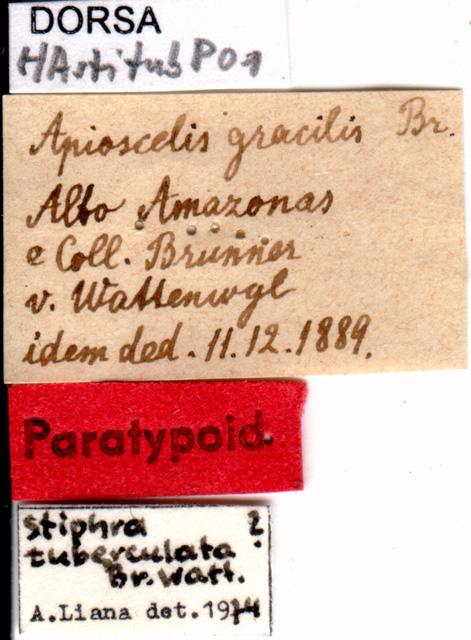 DORSA
HAstitubP01
Apioscelis gracilis Br.
Alto Amazonas
e Coll. Brunner
v. Wattenwyl
idem ded. 11.12.1889.
Paratypoid.
Stiphra ?
tuberculata
Br.Watt.
A.Liana det. 1974